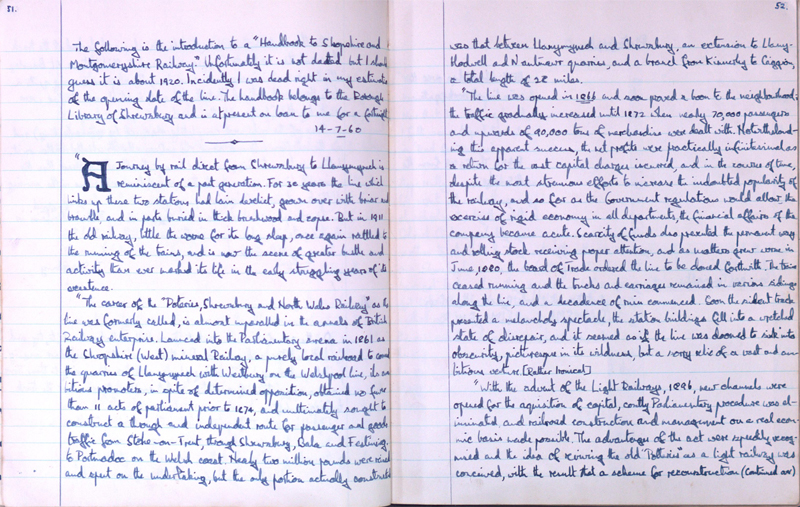 51.
The following is the introduction to a "Handbook to Shropshire and
Montgomeryshire Railway." Unfortunately it is not dated but I should
guess it is about 1920. Incidently I was dead right in my estimate
of the opening date of the line. The handbook belongs to the Borough
Library of Shrewsbury and is at present on loan to me for a fortnight
14-7-60
"A Journey by rail direct from Shrewsbury to Llanymynech is
reminiscent of a past generation. For 30 years the line which
links up these two stations had lain derelict, grown over with briar and
bramble and in parts buried in thick brushwood and copse. But in 1911
the old railway, little the worse for its long sleep, once again rattled to
the running of the trains, and is now the scene of greater bustle and
activity than ever marked its life in the early struggling years of its
existence.
"The career of the "Potteries, Shrewsbury and North Wales Railway" as the
line was formerly called, is almost unparalled in the annals of British
Railway enterprise. Launced into the Parliamentary arena in 1861 as
the Shropshire (West) mineral Railway, a purely local railroad to
the quarries of Llanymynech with Westbury on the Welshpool line, its am
bitious promoters, in spite of determined opposition, obtained no fewer
than 11 acts of parliament prior to 1874, and unltimately sought to
construct a through and independent route for passenger and goods
traffic from Stoke-upon-Trent, through Shrewsbury, Bala and Festiniog
to Portmadoc on the Welsh coast. Nearly two million pounds were raised
and spent on the undertaking, but the only portion actually constructed
52.
was that between Llanymynech and Shrewsbury, an extension to Llany-
blodwell and Nantmawr quarries, and a branch from Kinnerley to Criggion,
a total length of 28 miles.
"The line was opened in 1866 and soon proved a boon to the neighbourhood;
the traffic gradually increased until 1872 when nearly 70,000 passengers
and upwards of 90,000 tons of merchandise were dealt with. Notwithstand-
ing this apparent success, the net profits were practically infinitesimal as
a return for the vast capital charges incurred, and in the course of time,
despite the most strenuous efforts to increase the undoubted popularity of
the railway, and so far as the Government regulations would allow, the
exercise of rigid economy in all departments, the financial affairs of the
company became acute. Scarcity of funds also prevented the permanent way
and rolling stock receiving proper attention, and as matters grew worse in
June, 1880, the board of Trade ordered the line to be closed forthwith. The trains
ceased running and the trucks and carriages remained in various sidings
along the line, and a decadence of ruin commenced. Soon the silent track
presented a melancholy spectacle, the station buildings fell into a wretched
state of disrepair, and it seemed as if the line was doomed to sink into
obscurity, picturesque in its wildness, but a sorry relic of a vast and am-
bitious venture. [Rather Ironical]
"With the advent of the Light Railways, 1896, new channels were
opened for the aquisition of capital, costly Parliamentary procedure was el-
iminated and railroad construction and management on a real econ-
mic basis made possible. The advantages of the act were speedily recog-
nised and the idea of reviving the old "Potteries" as a light railway was
conceived, with the result that a scheme for reconstruction (Continued over)